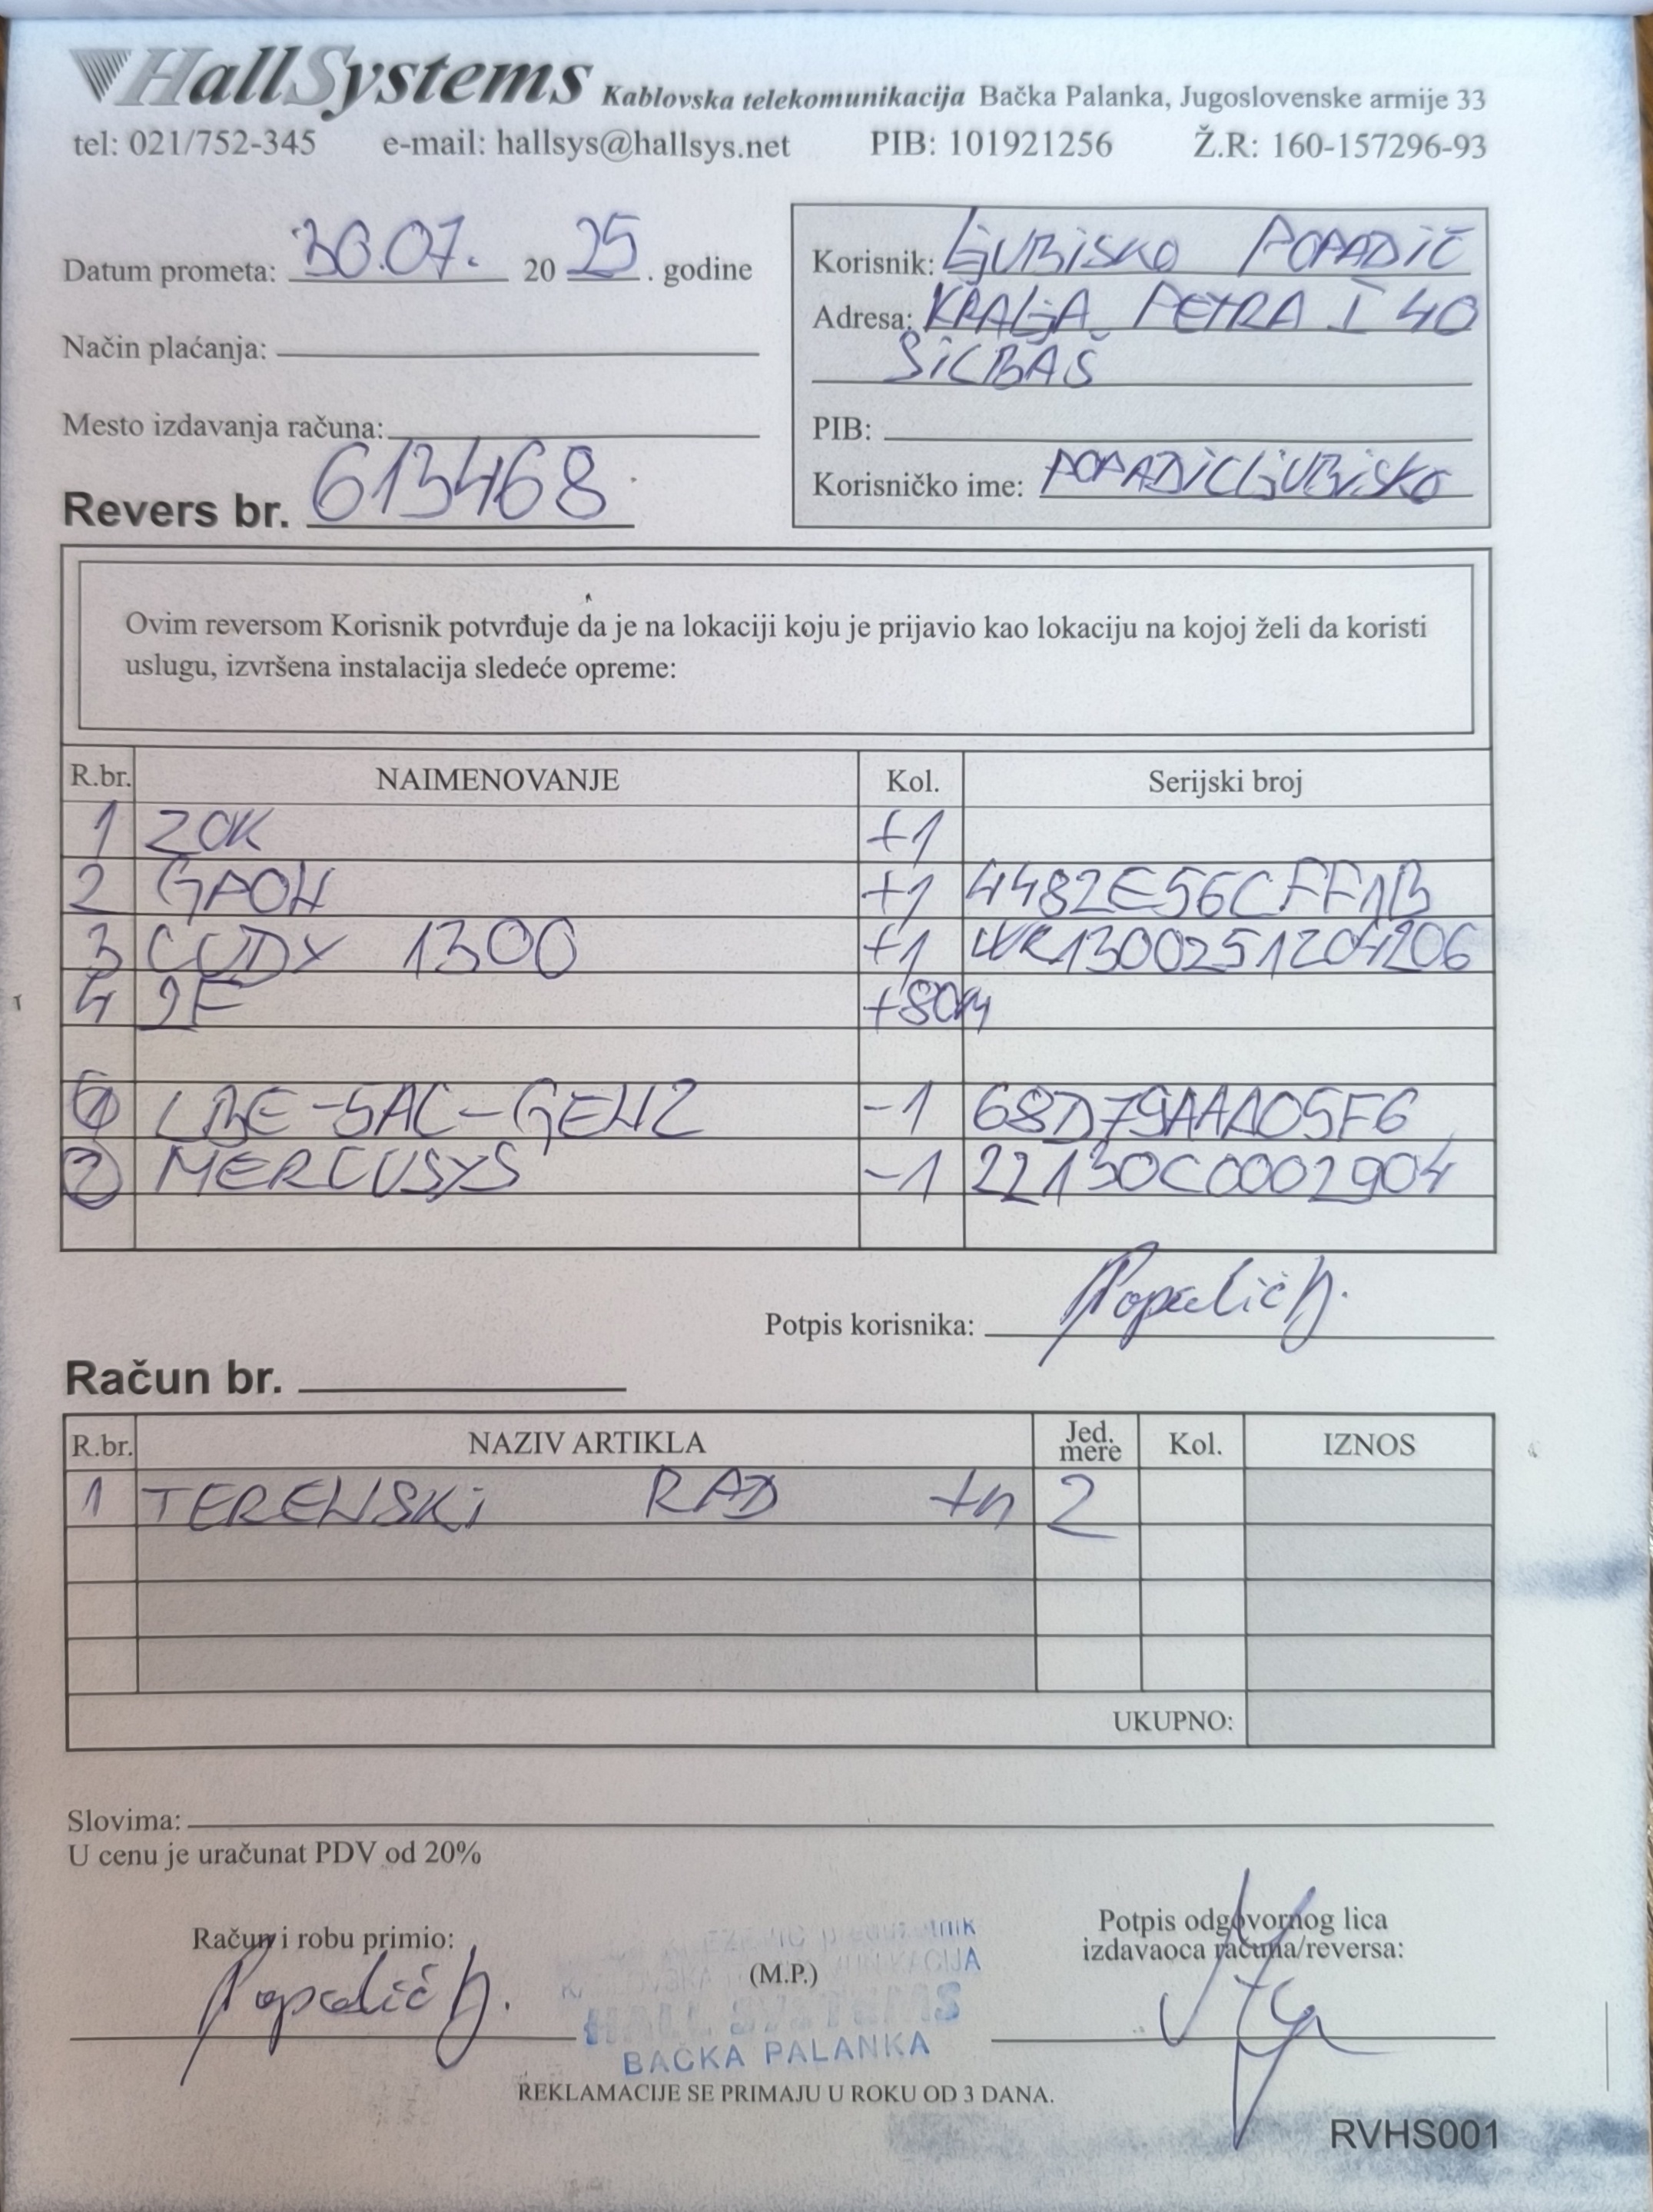 HallSystems Kablovska telekomunikacija Bačka Palanka, Jugoslovenske armije 33
tel: 021/752-345 e-mail: hallsys@hallsys.net PIB: 101921256 Ž.R: 160-157296-93
Datum prometa: 30.07. 20 25 . godine
Korisnik: LJUBISKO POPADIČ
Adresa: KRALJA PETRA I 40
SILBAŠ
Način plaćanja:
Mesto izdavanja računa:
PIB:
Korisničko ime: POPADICLJUBISKO
Revers br. 613468
Ovim reversom Korisnik potvrđuje da je na lokaciji koju je prijavio kao lokaciju na kojoj želi da koristi
uslugu, izvršena instalacija sledeće opreme:
R.br. NAIMENOVANJE Kol. Serijski broj
1 ZOK +1
2 GPON +1 4482E56CFF1B
3 CUDY 1300 +1 WR1300251204206
4 2F +80m
1 LBE-5AC-GEN2 -1 68D79AAA05F6
2 MERCUSYS -1 22130C0002904
Potpis korisnika: Popadić
Račun br.
R.br. NAZIV ARTIKLA Jed. mere Kol. IZNOS
1 TERENSKI RAD +h 2
UKUPNO:
Slovima:
U cenu je uračunat PDV od 20%
Račun i robu primio:
Popadić
(M.P.)
HALL SYSTEMS
BAČKA PALANKA
Potpis odgovornog lica
izdavaoca računa/reversa:
REKLAMACIJE SE PRIMAJU U ROKU OD 3 DANA.
RVHS001